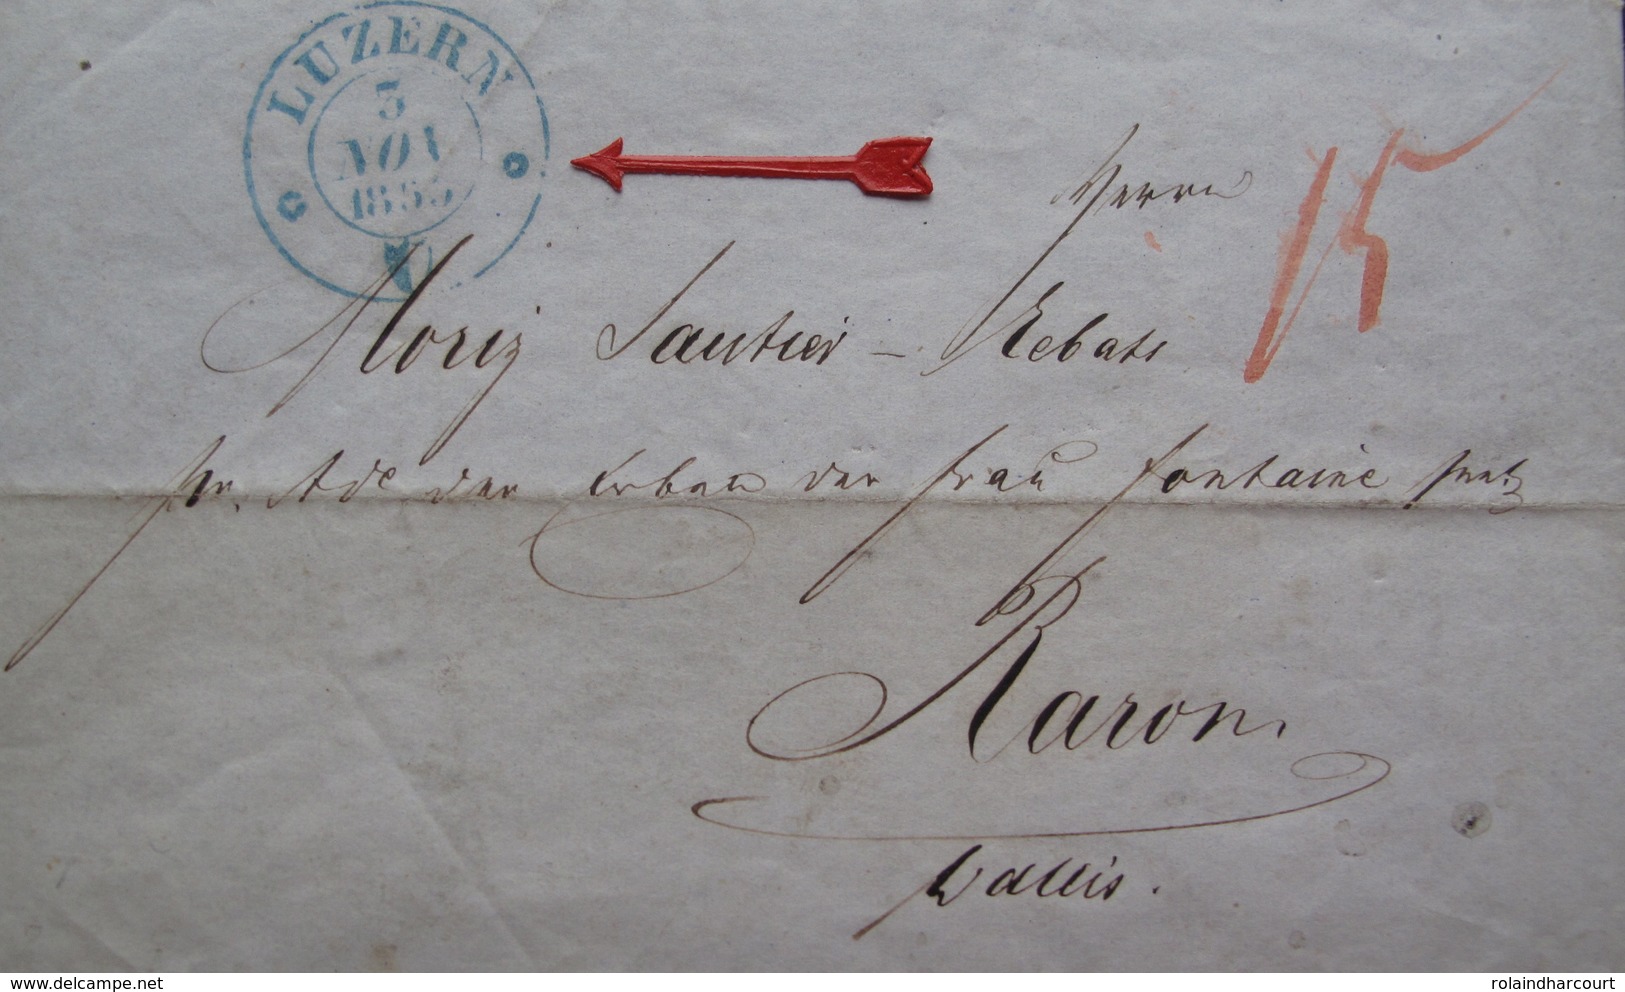 LUZERN
3
NOV
1853
Herrn
15
Moriz Sautier – Rebats
pr. Ade der Erben der Frau Fontaine
Raron
Wallis.
www.delcampe.net
rolaindharcourt